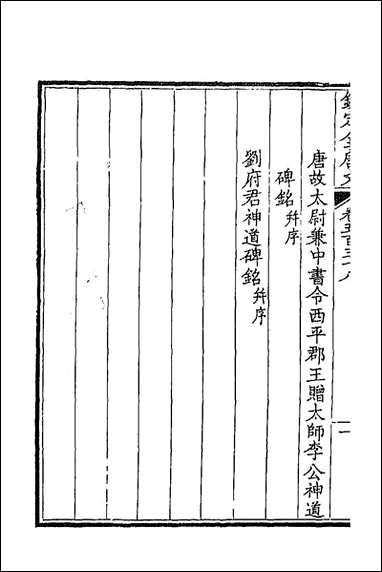 欽定全唐文 卷五百三十八
一
唐故太尉兼中書令西平郡王贈太師李公神道
碑銘并序
劉府君神道碑銘并序